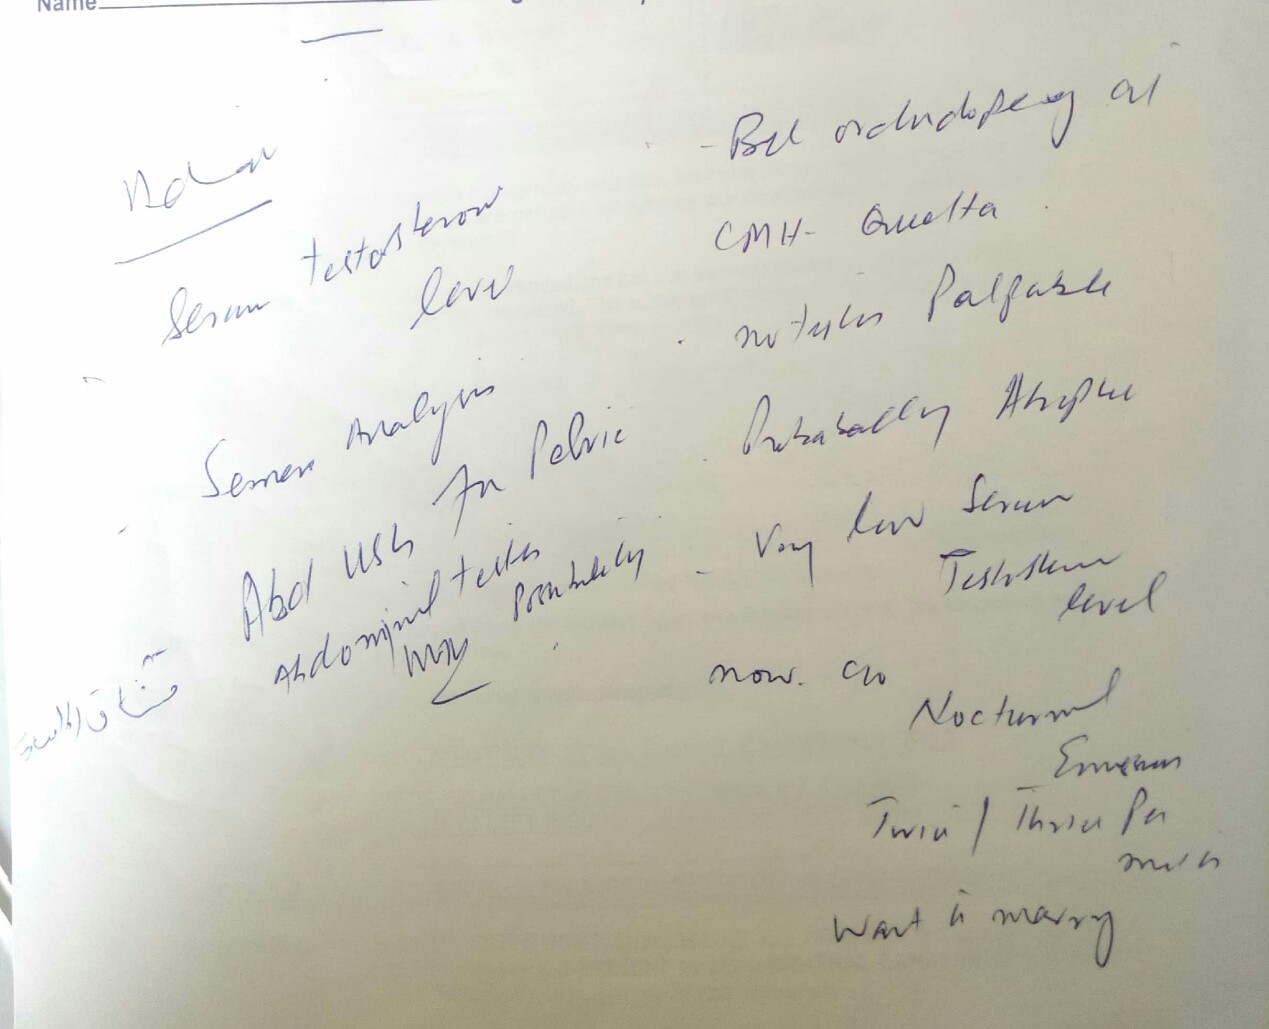 Name
Serum testosterone
level
Semen Analysis
Abd USG for Pelvic
Abdominal testes
Possibility
- Bil orchidopexy at
CMH - Quetta
no testes Palpable
Probabally Atrophic
- Very low Serum
Testosterone
level
now. c/o
Nocturnal
Emission
Twice / Thrice Per
Want to marry